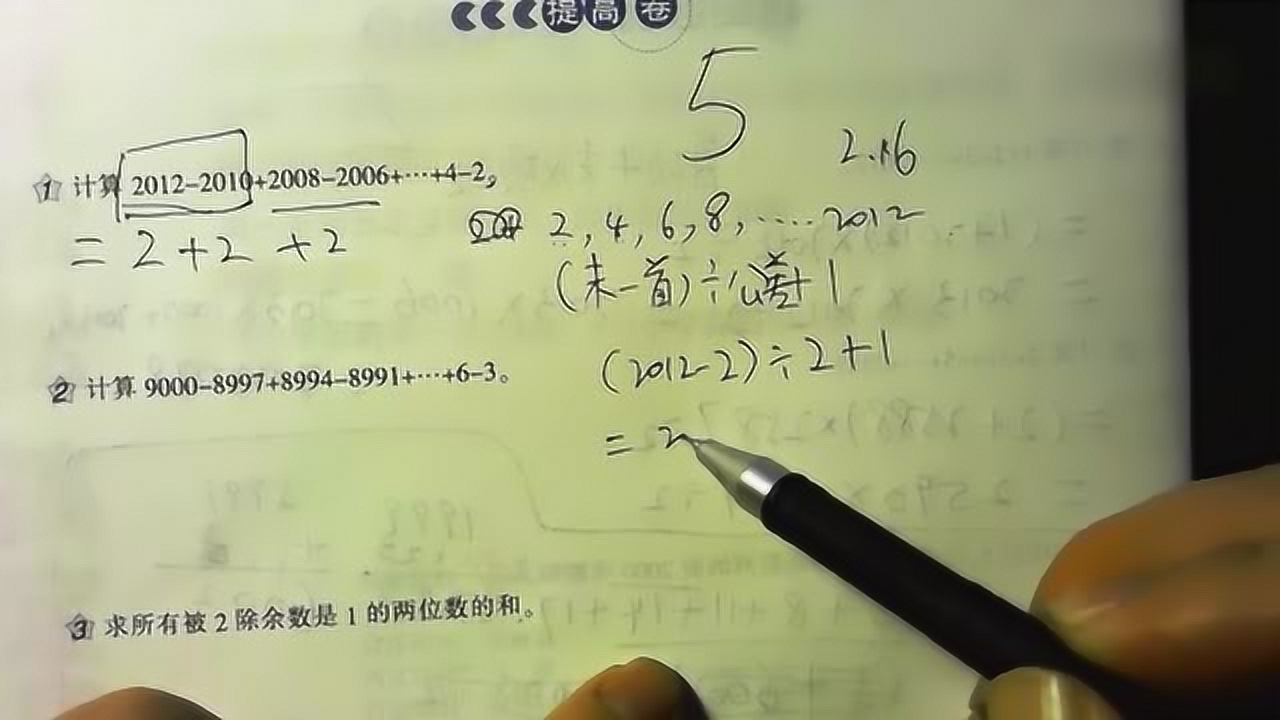 提高卷
5
2.16
1 计算 2012-2010+2008-2006+…+4-2。
= 2+2 +2
2,4,6,8,……2012
(末-首)÷公差+1
(2012-2)÷2+1
2 计算 9000-8997+8994-8991+…+6-3。
= 2
3 求所有被 2 除余数是 1 的两位数的和。